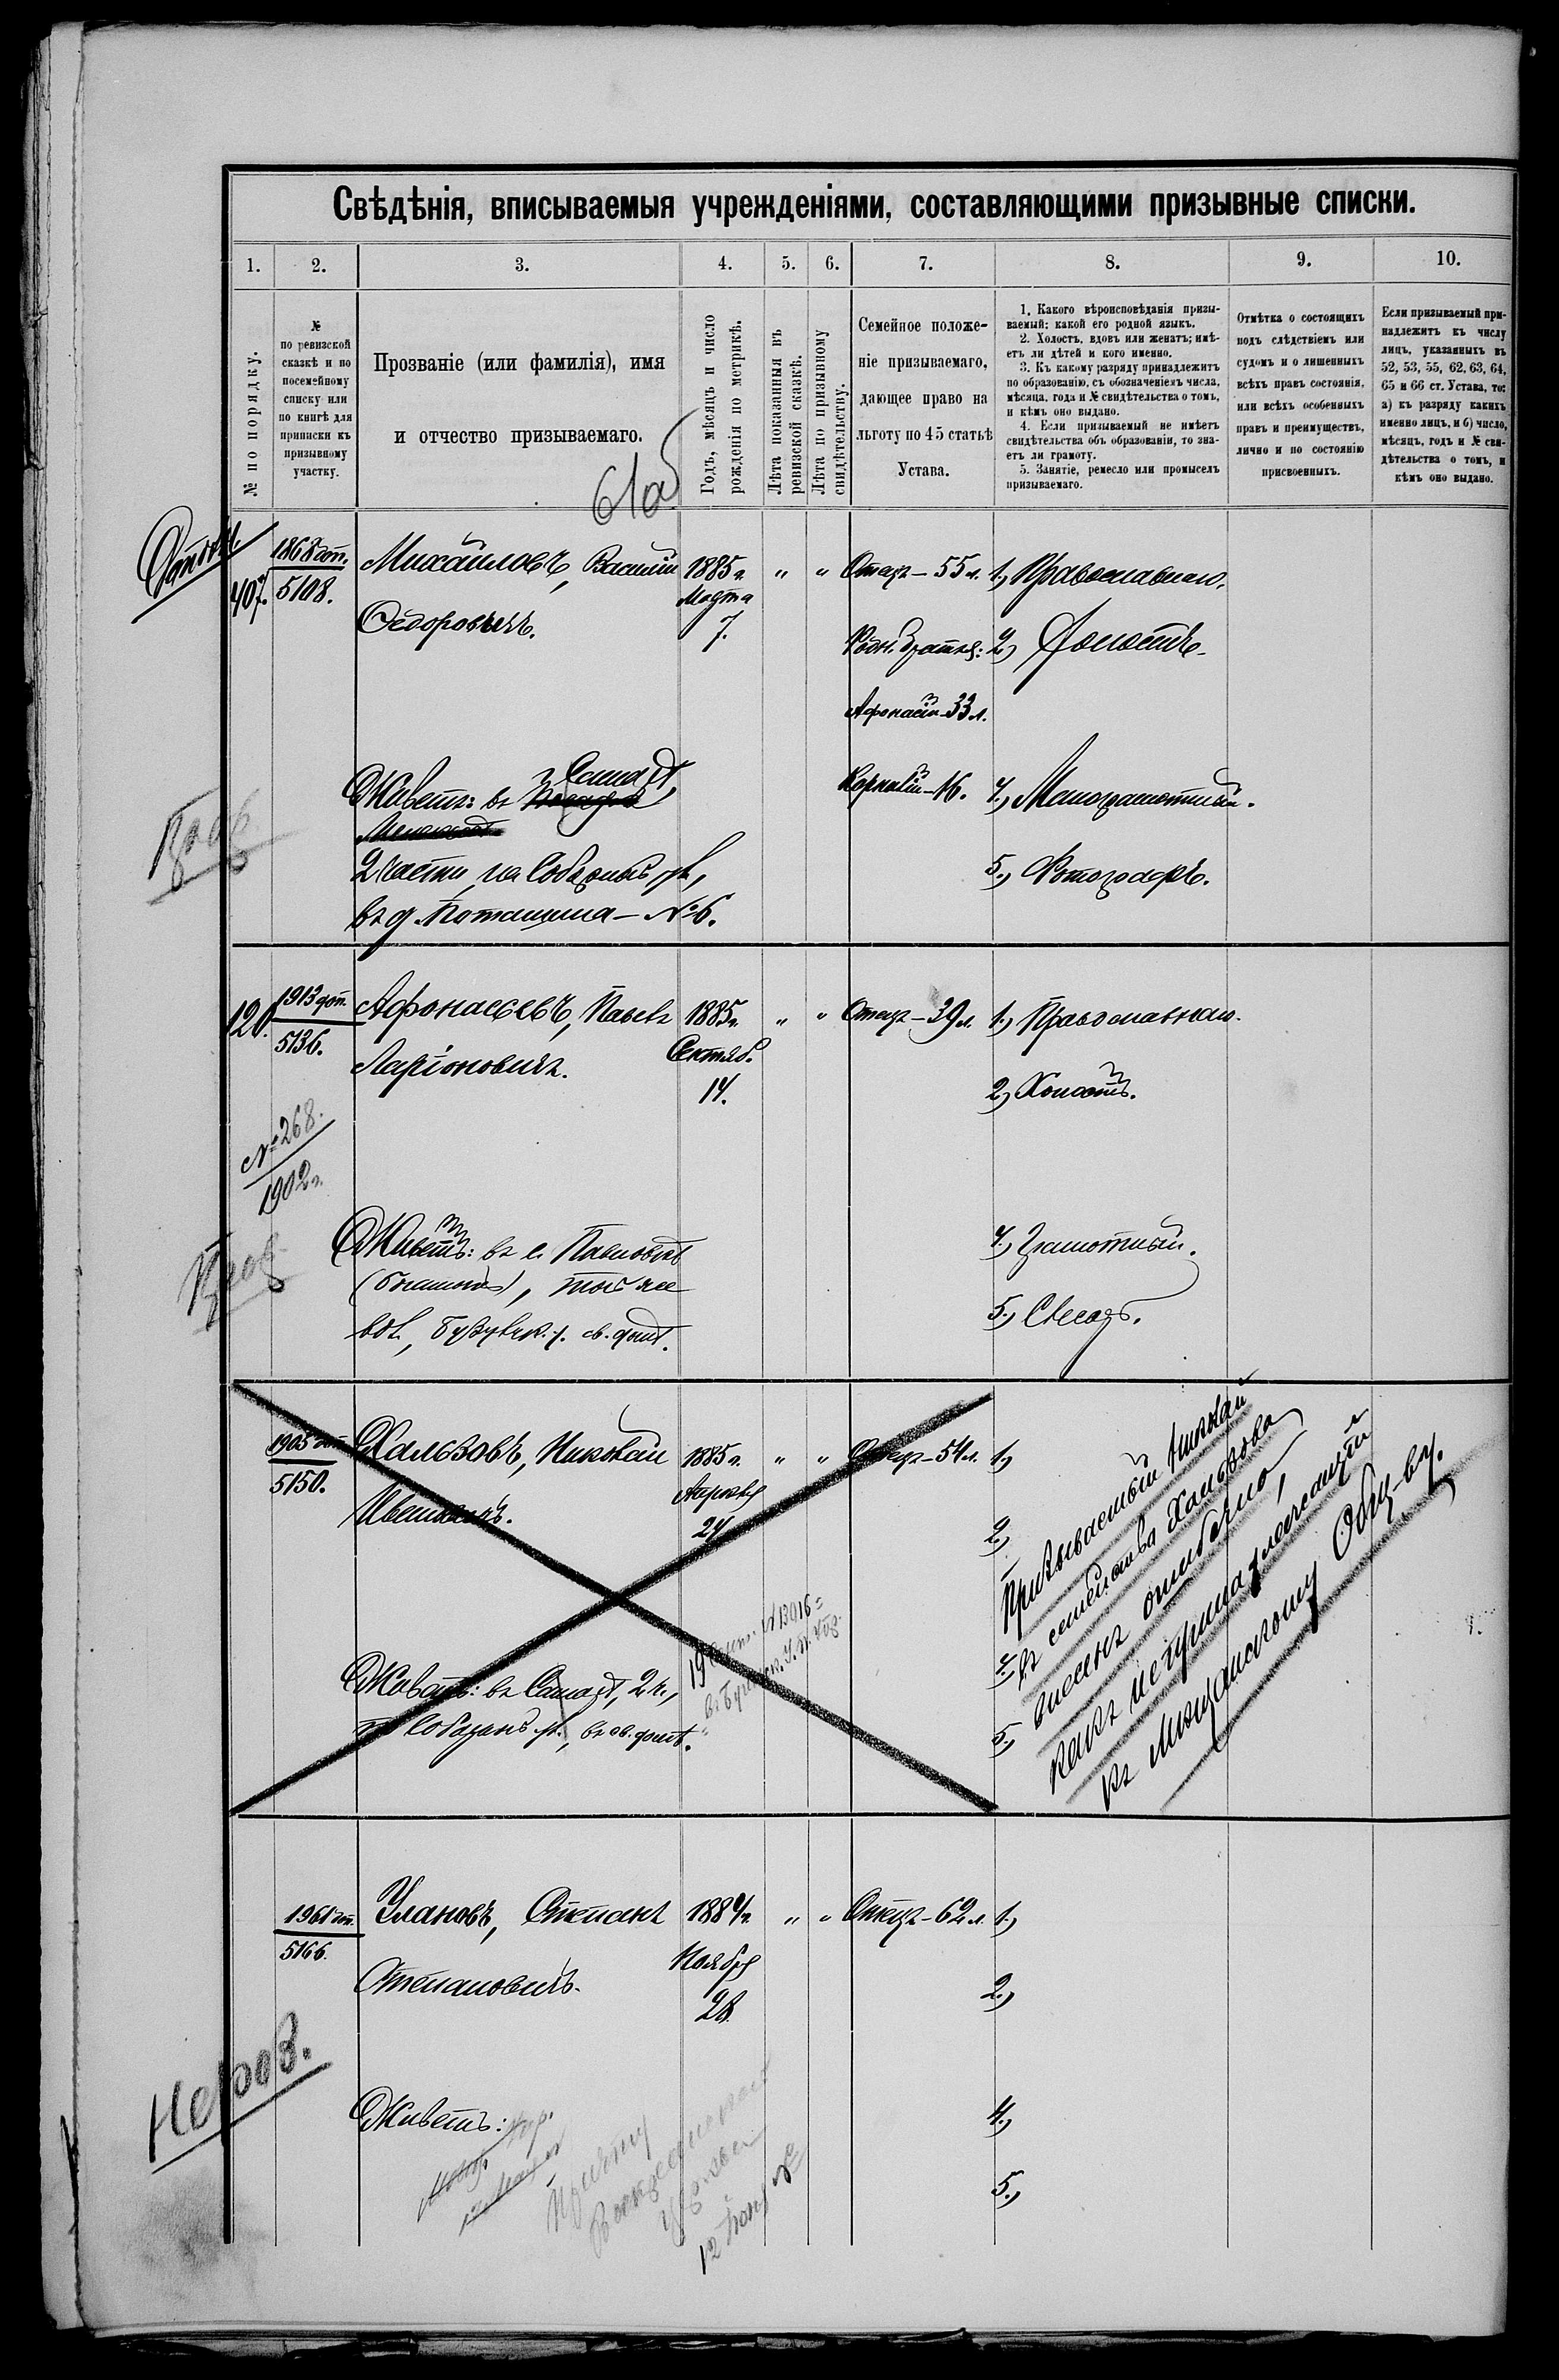 Свѣдѣнія, вписываемыя учрежденіями, составляющими призывные списки.
1. 2. 3. 4. 5. 6. 7. 8. 9. 10.
№ по порядку.
№
по ревизской
сказкѣ и по
посемейному
списку или
по книгѣ для
приписки къ
призывному
участку.
Прозваніе (или фамилія), имя
и отчество призываемаго.
Годъ, мѣсяцъ и число
рожденія по метрикѣ.
Лѣта показанныя въ
ревизской сказкѣ.
Лѣта по призывному
свидѣтельству.
Семейное положе-
ніе призываемаго,
дающее право на
льготу по 45 статьѣ
Устава.
1. Какого вѣроисповѣданія призы-
ваемый; какой его родной языкъ.
2. Холостъ, вдовъ или женатъ; имѣ-
етъ ли дѣтей и кого именно.
3. Къ какому разряду принадлежитъ
по образованію, съ обозначеніемъ числа,
мѣсяца, года и № свидѣтельства о томъ,
и кѣмъ оно выдано.
4. Если призываемый не имѣетъ
свидѣтельства объ образованіи, то зна-
етъ ли грамоту.
5. Занятіе, ремесло или промыселъ
призываемаго.
Отмѣтка о состоящихъ
подъ слѣдствіемъ или
судомъ и о лишенныхъ
всѣхъ правъ состоянія,
или всѣхъ особенныхъ
правъ и преимуществъ,
лично и по состоянію
присвоенныхъ.
Если призываемый при-
надлежитъ къ числу
лицъ, указанныхъ въ
52, 53, 55, 62, 63, 64,
65 и 66 ст. Устава, то:
а) къ разряду какихъ
именно лицъ, и б) число,
мѣсяцъ, годъ и № сви-
дѣтельства о томъ, и
кѣмъ оно выдано.
61об
407.
1868 доп.
5108.
Михайловъ, Василій
Ѳедоровичъ.
1885 г.
Марта
7.
" "
Отецъ - 55 л.
Родн. братья:
Афонасій - 33 л.
Корнилій - 16.
1.) Православнаго.
2.) Холостъ.
4.) Малограмотный.
5.) Фотографъ.
Живетъ: въ Самарѣ,
2 части, на Соборной ул.,
въ д. Поташина - № 6.
120.
1913 доп.
5136.
Афонасьевъ, Павелъ
Ларіоновичъ.
1885 г.
Сентяб.
14.
" "
Отецъ - 39 л.
1.) Православнаго.
2.) Холостъ.
4.) Грамотный.
5.) Слесарь.
№ 268.
1902 г.
Живетъ: въ с. Павловкѣ
той же
вол., Бузулук. у. св. домѣ.
1905 доп.
5150.
Хальзовъ, Николай
1885 г.
Апрѣля
24
" "
Отецъ - 54 л.
1.)
2.)
4.)
5.)
Живетъ: въ Самарѣ, 2 ч.,
по Соборной ул., въ св. домѣ.
№ 13016
Призываемый Николай
въ семейство Хальзова
внесенъ ошибочно,
какъ не принадлежащій
къ Мѣщанскому Общ-ву.
1961 доп.
5166.
Улановъ, Степанъ
Степановичъ.
1884 г.
Ноября
28.
" "
Отецъ - 62 л.
1.)
2.)
4.)
5.)
Живетъ:
Причту
Воскресенской
церкви
Неров.